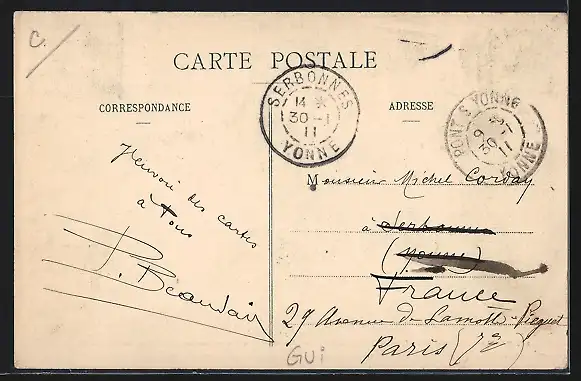 C.
CARTE POSTALE
CORRESPONDANCE
ADRESSE
SERBONNES
14 *
30 - 1
11
YONNE
PONT S YONNE
9
30 - 1
11
YONNE
J'envoie des cartes
à tous
P. Beaudoin
Monsieur Michel Corday
à Serbonnes
(Yonne)
France
29 Avenue de Lamotte-Picquet
Paris (7E)
GUI